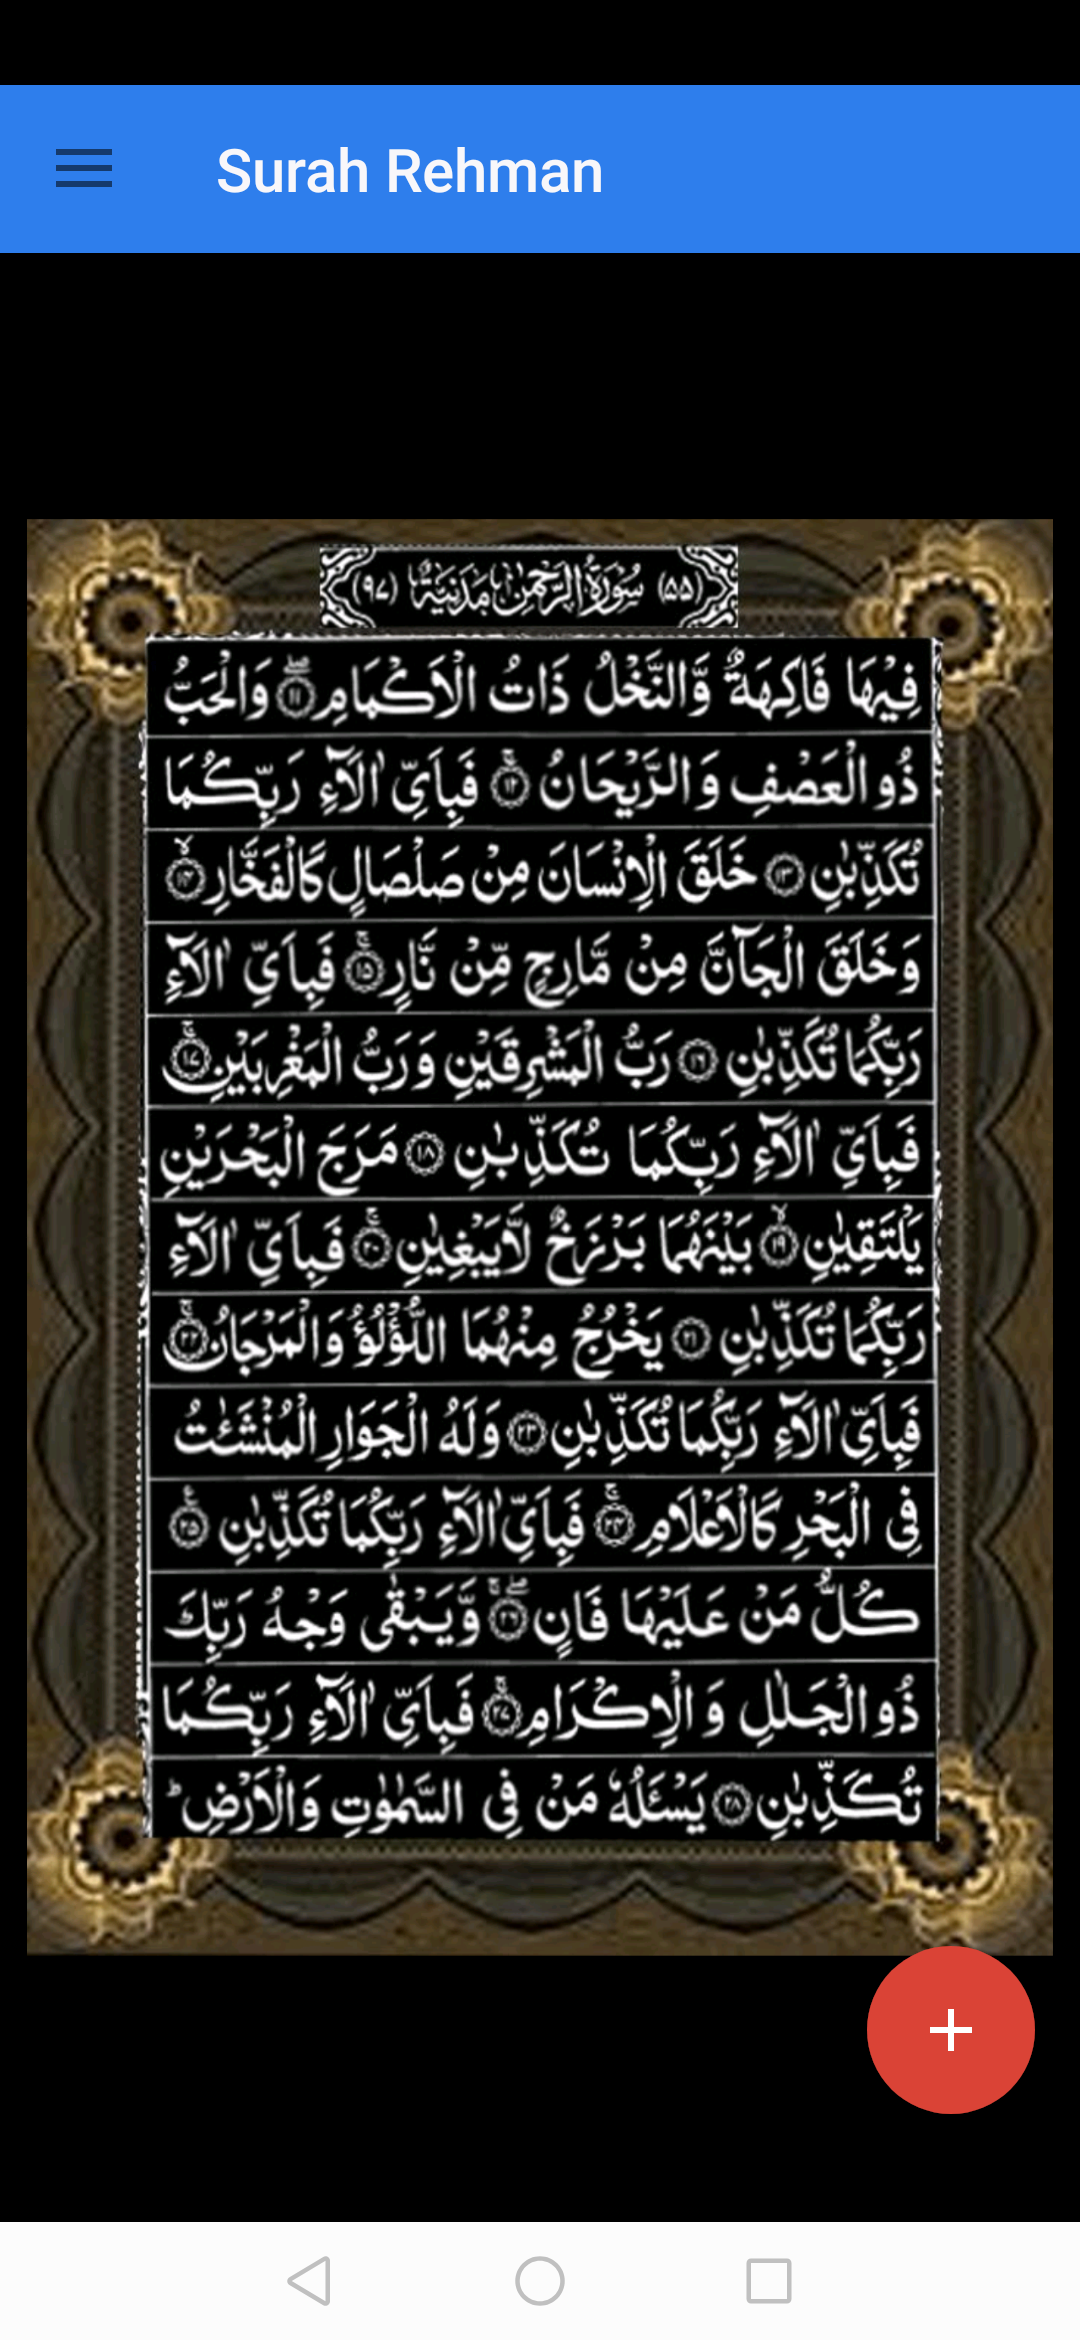 Surah Rehman
(۵۵) سُوْرَةُ الرَّحْمٰنِ مَدَنِيَّةٌ (۹۷)
فِيْهَا فَاكِهَةٌ وَّالنَّخْلُ ذَاتُ الْاَكْمَامِ ۖ ۱۱ وَالْحَبُّ
ذُو الْعَصْفِ وَالرَّيْحَانُ ۚ ۱۲ فَبِاَيِّ اٰلَآءِ رَبِّكُمَا
تُكَذِّبٰنِ ۱۳ خَلَقَ الْاِنْسَانَ مِنْ صَلْصَالٍ كَالْفَخَّارِ ۙ ۱۴
وَخَلَقَ الْجَآنَّ مِنْ مَّارِجٍ مِّنْ نَّارٍ ۚ ۱۵ فَبِاَيِّ اٰلَآءِ
رَبِّكُمَا تُكَذِّبٰنِ ۱۶ رَبُّ الْمَشْرِقَيْنِ وَرَبُّ الْمَغْرِبَيْنِ ۚ ۱۷
فَبِاَيِّ اٰلَآءِ رَبِّكُمَا تُكَذِّبٰنِ ۱۸ مَرَجَ الْبَحْرَيْنِ
يَلْتَقِيٰنِ ۙ ۱۹ بَيْنَهُمَا بَرْزَخٌ لَّايَبْغِيٰنِ ۚ ۲۰ فَبِاَيِّ اٰلَآءِ
رَبِّكُمَا تُكَذِّبٰنِ ۲۱ يَخْرُجُ مِنْهُمَا اللُّؤْلُؤُ وَالْمَرْجَانُ ۚ ۲۲
فَبِاَيِّ اٰلَآءِ رَبِّكُمَا تُكَذِّبٰنِ ۲۳ وَلَهُ الْجَوَارِ الْمُنْشَئٰتُ
فِي الْبَحْرِ كَالْاَعْلَامِ ۚ ۲۴ فَبِاَيِّ اٰلَآءِ رَبِّكُمَا تُكَذِّبٰنِ ۲۵
كُلُّ مَنْ عَلَيْهَا فَانٍ ۖ ۚ ۲۶ وَّيَبْقٰى وَجْهُ رَبِّكَ
ذُو الْجَلٰلِ وَالْاِكْرَامِ ۚ ۲۷ فَبِاَيِّ اٰلَآءِ رَبِّكُمَا
تُكَذِّبٰنِ ۲۸ يَسْئَلُهٗ مَنْ فِي السَّمٰوٰتِ وَالْاَرْضِ ؕ